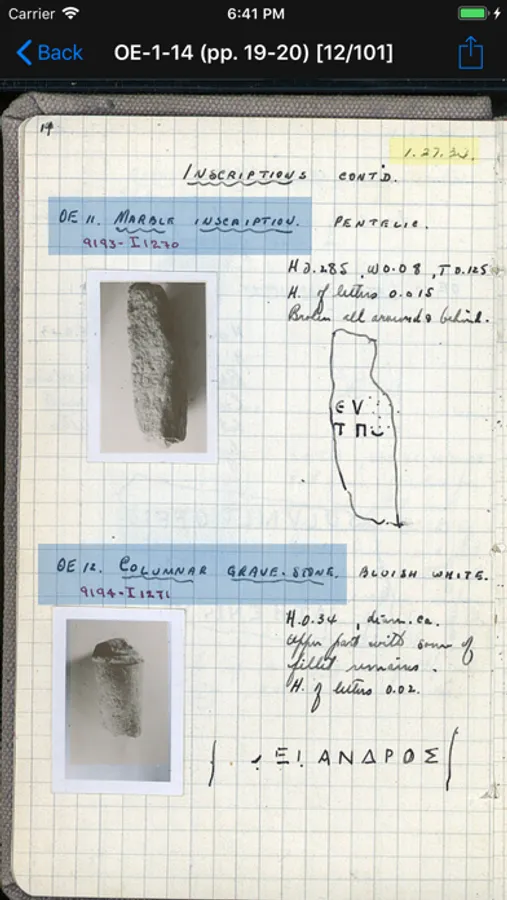 Carrier 6:41 PM
Back OE-1-14 (pp. 19-20) [12/101]
19
1.27.33.
INSCRIPTIONS CONT'D.
OE 11. MARBLE INSCRIPTION. PENTELIC.
9193-I1270
H 0.285, W 0.08, T 0.125
H. of letters 0.015
Broken all around & behind.
ЄV
ΤΠ
OE 12. COLUMNAR GRAVE-STONE. BLUISH WHITE.
9194-I1271
H. 0.34, diam. ca.
Upper part with some of
fillet remains.
H. of letters 0.02.
ΕΙ ΑΝΔΡΟΣ